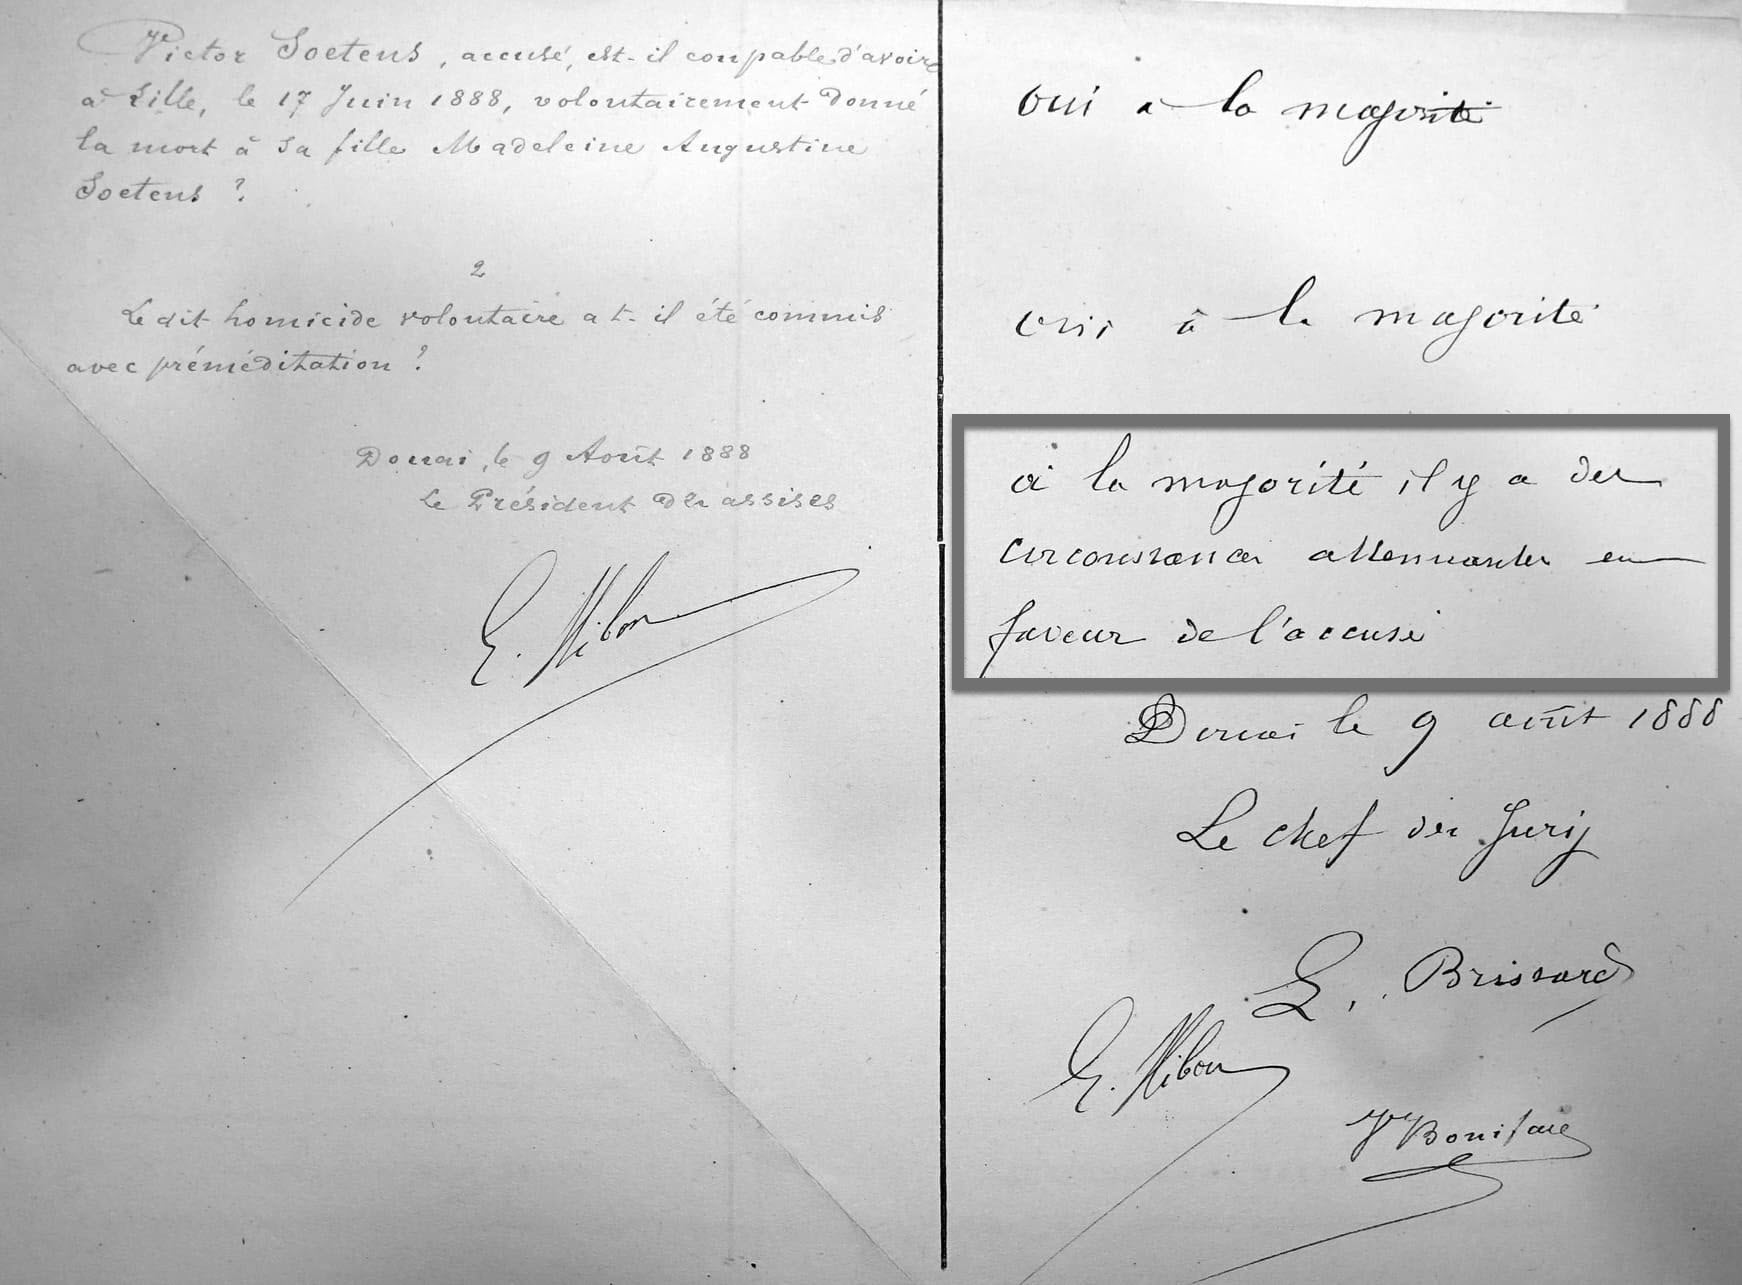 Victor Soetens, accusé, est-il coupable d'avoir
à Lille, le 17 Juin 1888, volontairement donné
la mort à sa fille Madeleine Augustine
Soetens ?
2
Le dit homicide volontaire a t-il été commis
avec préméditation ?
Douai, le 9 Août 1888
Le Président des assises
E. Hibon
oui à la majorité
oui à la majorité
à la majorité il y a des
circonstances attenuantes en
faveur de l'accusé
Douai le 9 août 1888
Le chef du Jury
L. Brissard
E. Hibon
Vr Boniface